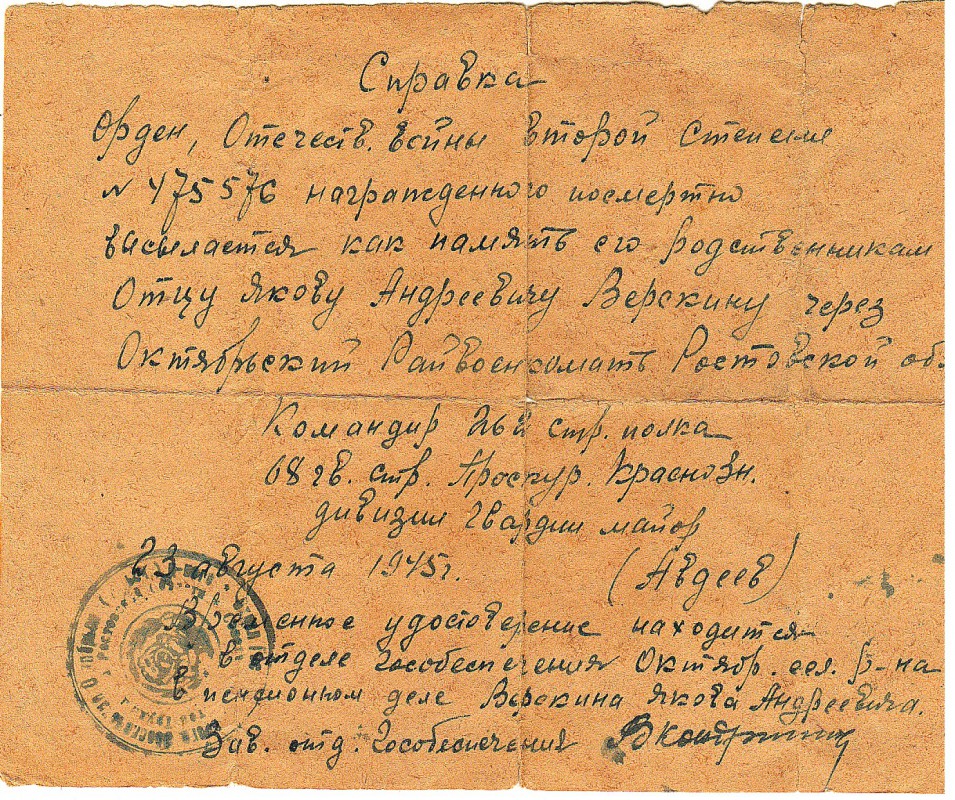 Справка
Орден, Отечеств. войны второй степени
N 475576 награжденного посмертно
высылается как память его родственникам
Отцу Якову Андреевичу Верскину через
Октябрьский Райвоенкомать Ростовской об.
Командир 262 стр. полка
68 гв. стр. Проскур. Краснозн.
дивизии гвардии майор
23 августа 1945г. (Авдеев)
Временное удостоверение находится
в отделе Гособеспечения Октябр. сел. р-на
в пенсионном деле Верскина Якова Андреевича.
Зав. отд. Гособеспечения